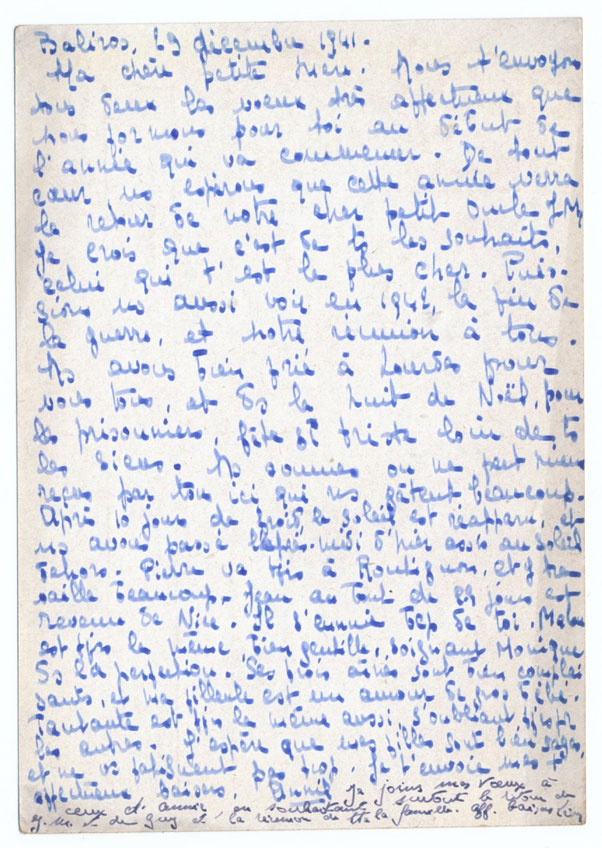 Baliros, 29 décembre 1941.
Ma chère petite Mère. Nous t'envoyons
tous deux les voeux très affectueux que
nous formons pour toi au début de
l'année qui va commencer. De tout
coeur ns espérons que cette année verra
le retour de notre cher petit Oncle J.M.
Je crois que c'est de ts les souhaits,
celui qui t'est le plus cher. Puis-
sions ns aussi voir en 1942 la fin de
la guerre, et notre réunion à tous.
Ns avons bien prié à Lourdes pour
vous tous, et ds la nuit de Noël, pour
les prisonniers, fête si triste loin de ts
les siens. Ns sommes on ne peut mieux
reçus par tous ici qui ns gâtent beaucoup.
Après 10 jours de froid le soleil est réapparu, et
ns avons passé l'après-midi d'hier assis au soleil
dehors. Pierre va tjs à et y tra
vaille beaucoup. Jean au bout de 29 jours est
revenu de Nice. Il s'ennuie bcp de toi.
est tjs la même bien gentille, soignant Monique
ds la perfection. Ses trois aînés sont bien complai
sants, et ma filleule est un amour de gros bébé.
Tantante est tjs la même aussi, s'oubliant pr
les autres. J'espère que mes filles sont bien sages,
et ne vs fatiguent pas trop. Je t'envoie mes +
affectueux baisers. Annie Je joins mes voeux à
ceux d'Annie, en souhaitant surtout le retour de
J.M. et de Guy et la réunion de tte la famille. aff. baisers